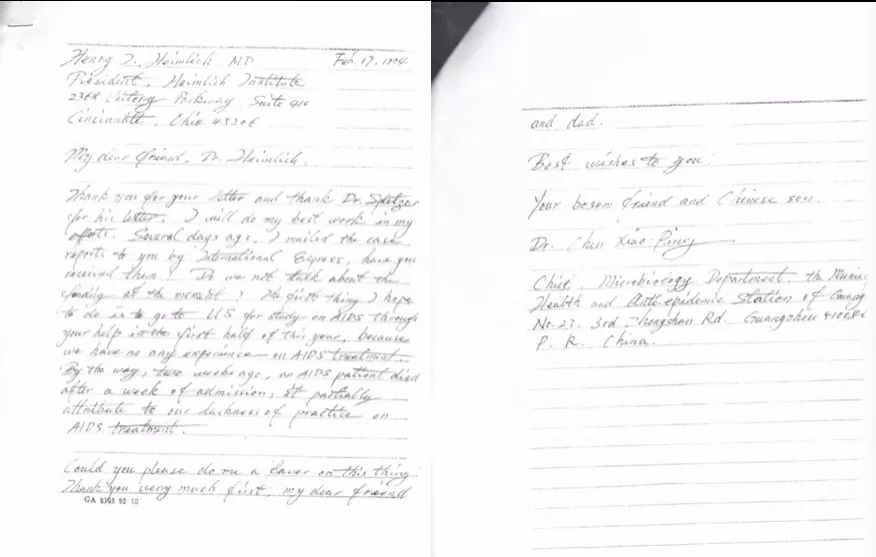 Henry J. Heimlich M.D Feb. 17, 1994
President, Heimlich Institute
2368 Victory Parkway, Suite 410
Cincinnati, Ohio 45206
My dear friend, Dr. Heimlich,
Thank you for your letter and thank Dr. Spletzer
for his letter. I will do my best work in my
efforts. Several days ago, I mailed the case
reports to you by International Express, have you
received them? Do we not talk about the
funding at the moment? The first thing I hope
to do is to go to US for study on AIDS through
your help in the first half of this year, because
we have no any experience on AIDS treatment.
By the way, two weeks ago, an AIDS patient died
after a week of admission; it partially
attribute to our lackness of practice on
AIDS treatment.
Could you please do me a favor on this thing.
Thank you very much first, my dear friend
GA 92 10
and dad.
Best wishes to you.
Your bosom friend and Chinese son.
Dr. Chen Xiao Ping
Chief, Microbiology Department, the
Health and Anti-epidemic Station of Guang
No. 23. 3rd Zhongshan Rd. Guangzhou
P. R. China.